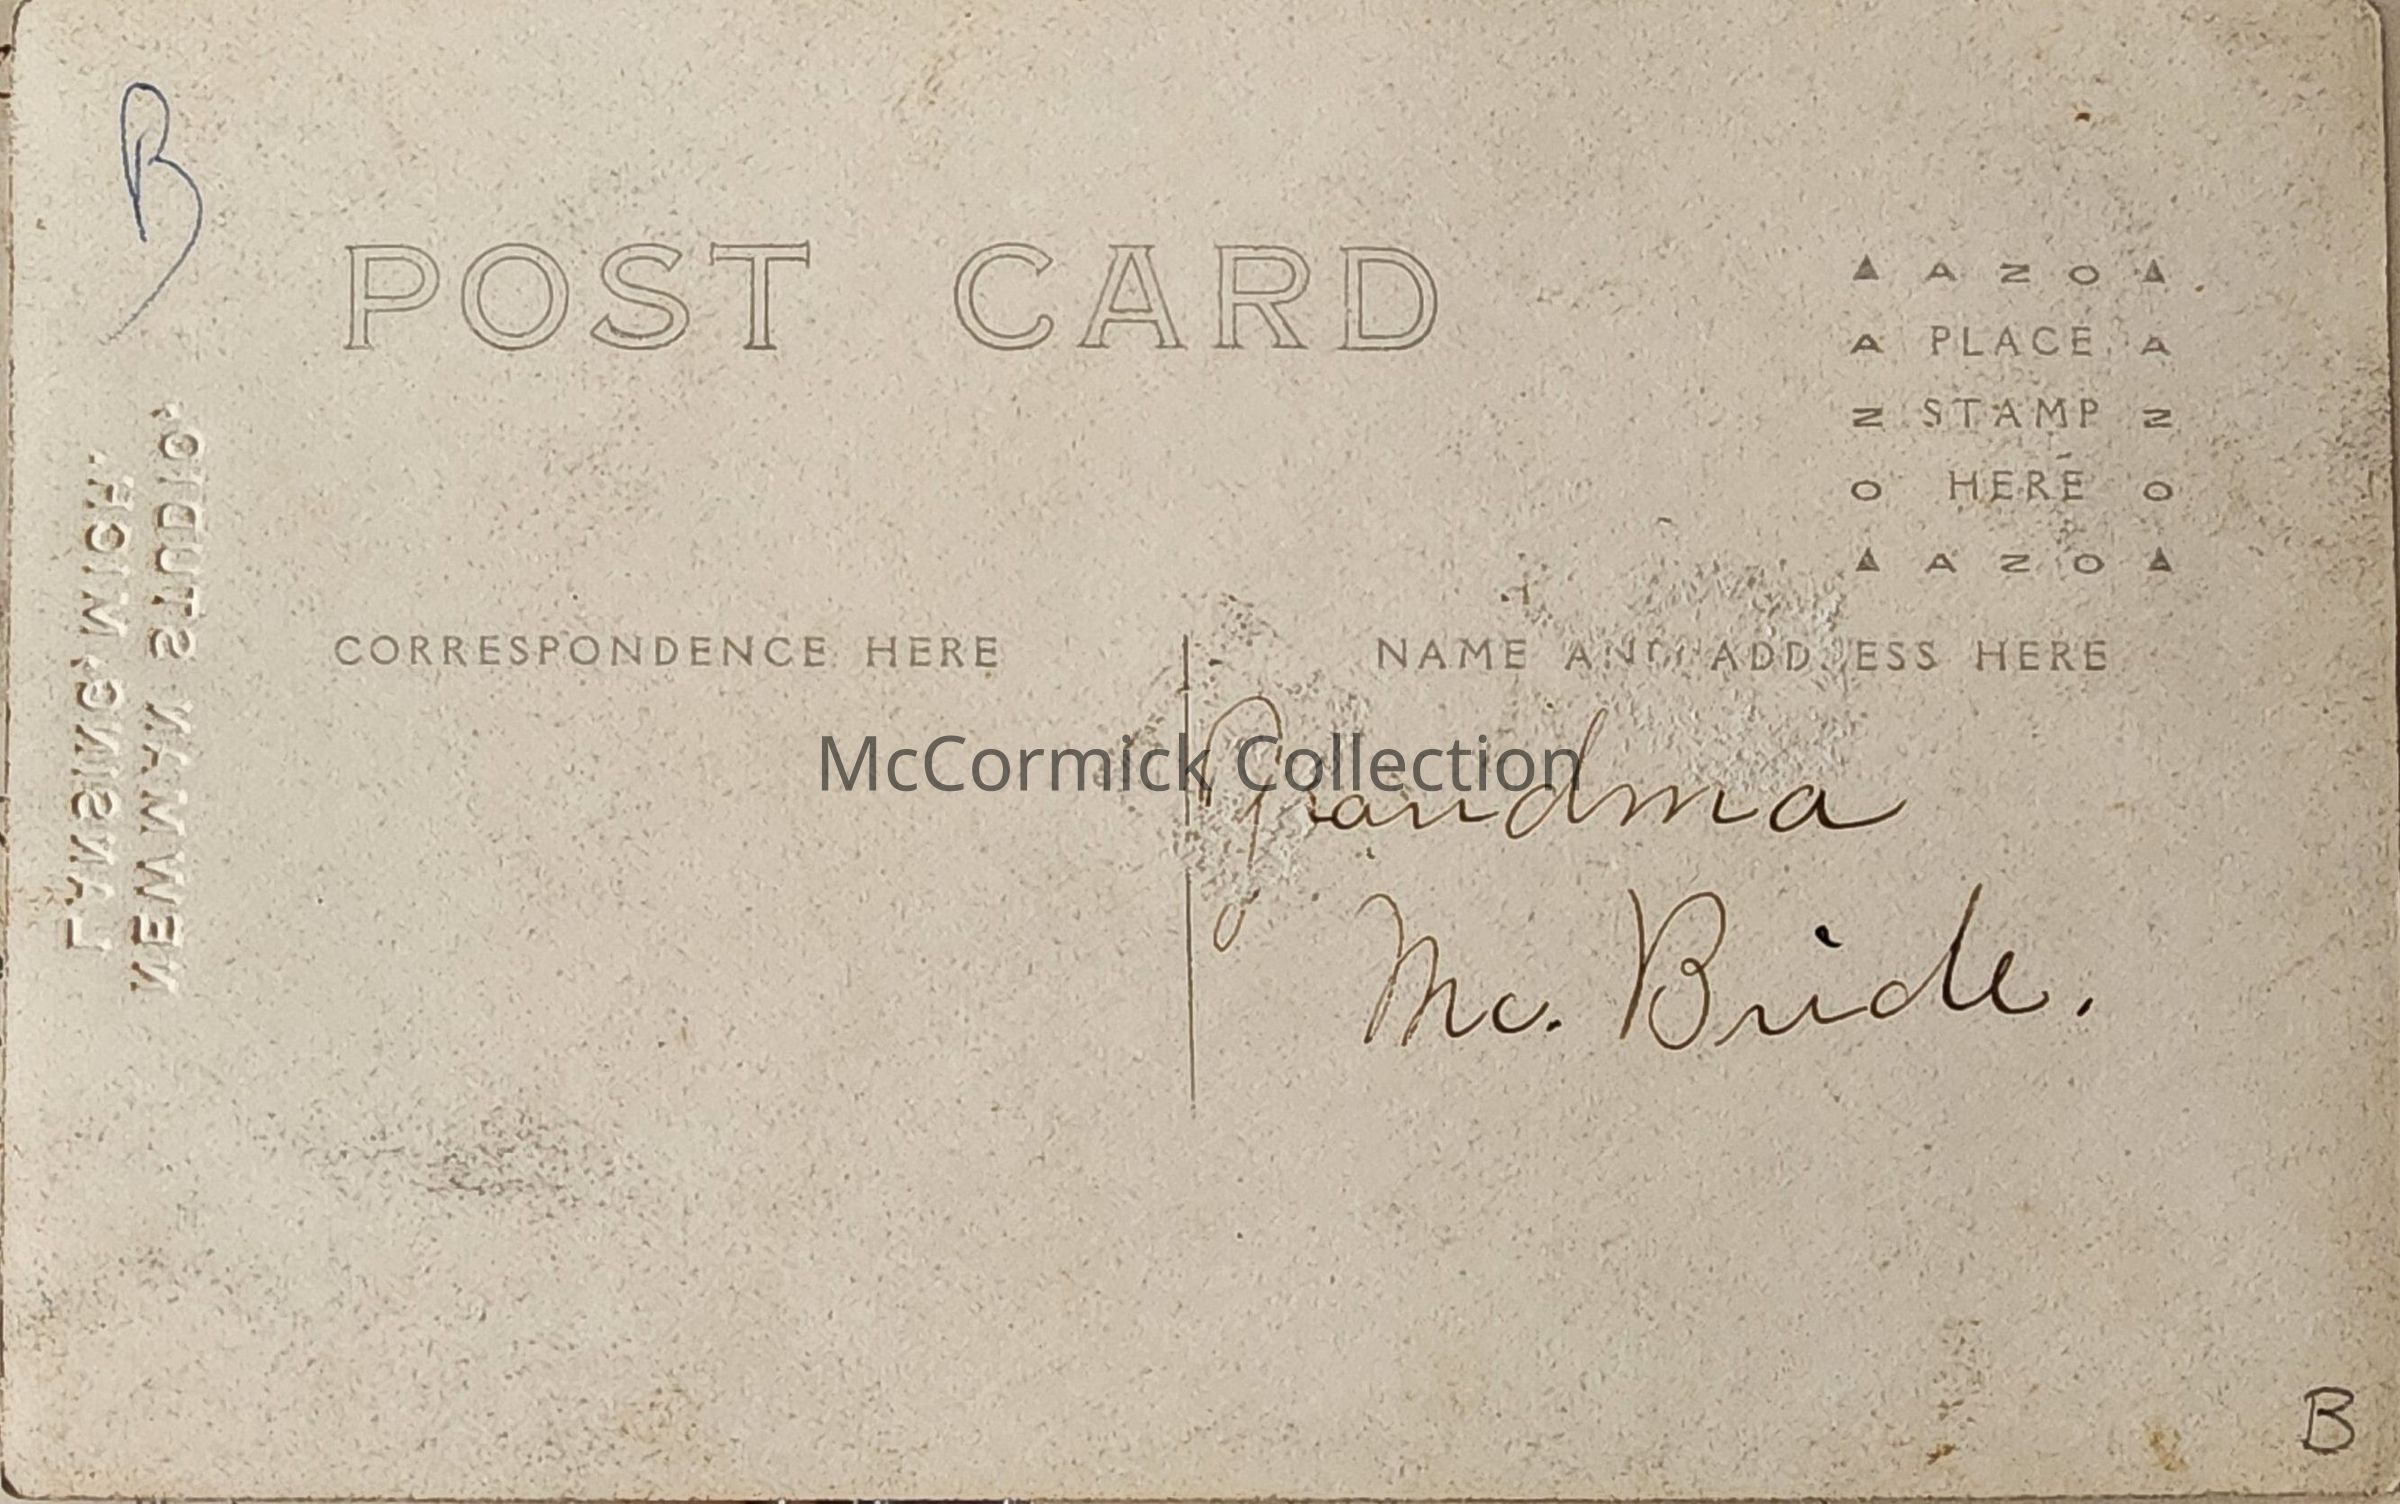 B
POST CARD
▲ A Z O ▲
A PLACE A
Z STAMP Z
O HERE O
▲ A Z O ▲
NEWMAN STUDIO.
LANSING, MICH.
CORRESPONDENCE HERE
NAME AND ADDRESS HERE
McCormick Collection
Grandma
Mc. Bride.
B